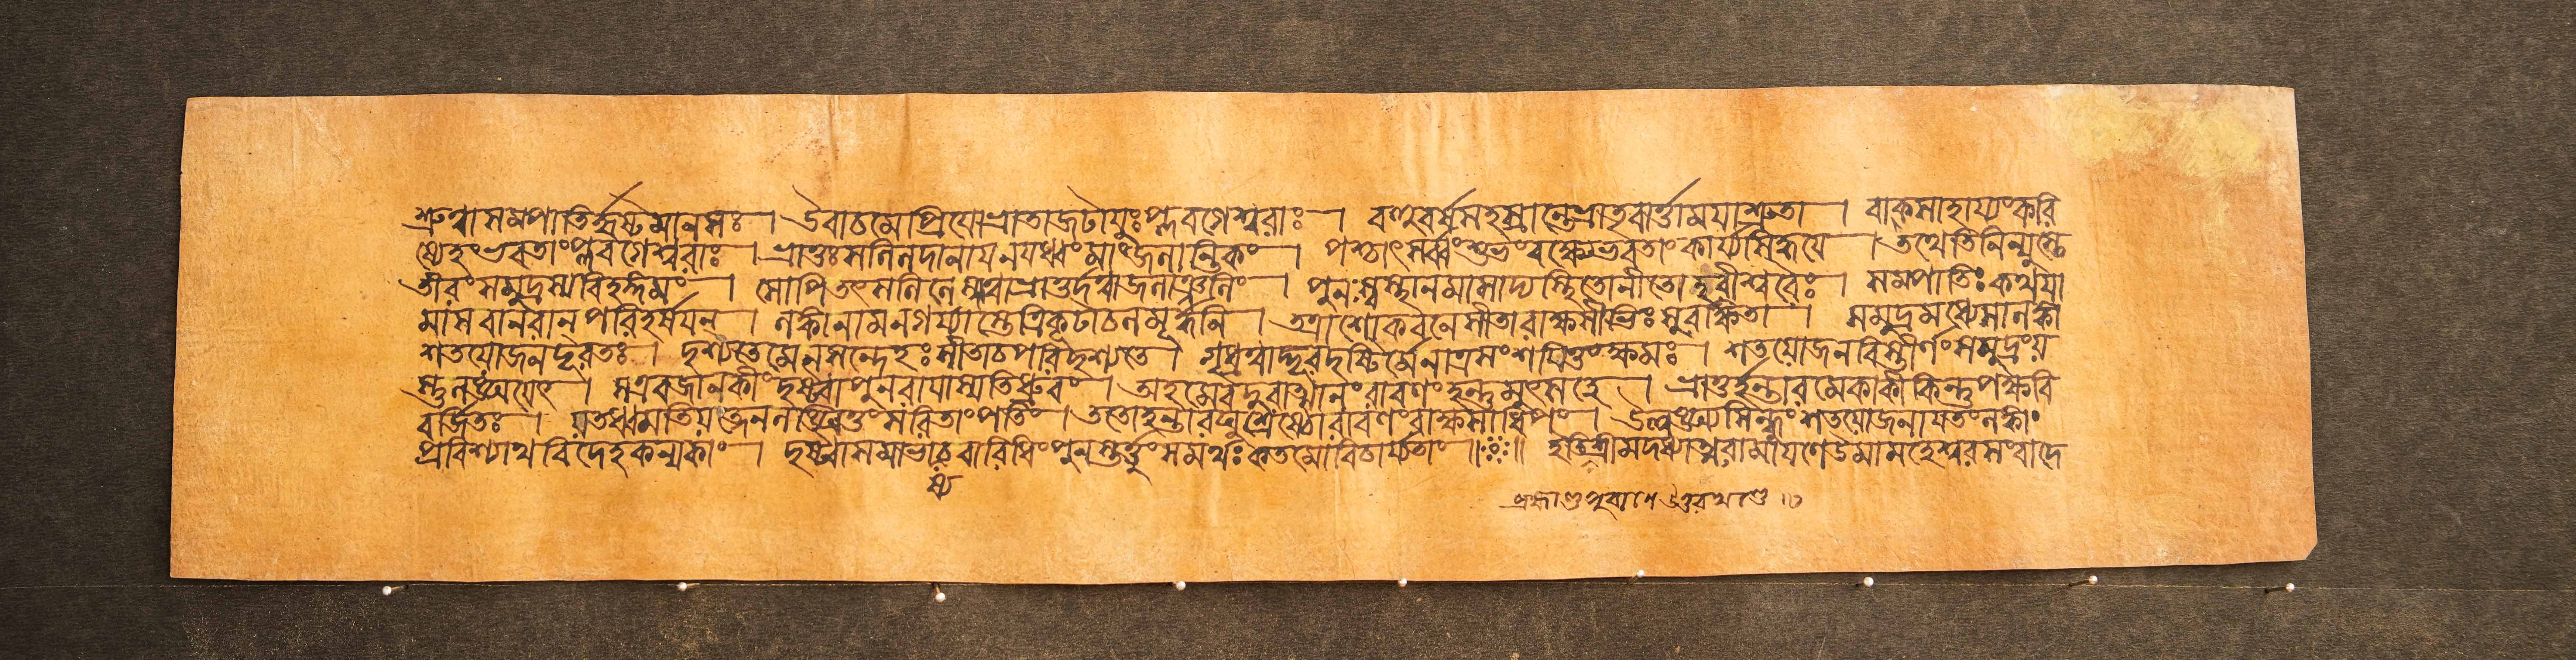 শ্রুত্বাসমপাতির্হৃষ্টমানসঃ । উবাচমেপ্রিয়োভ্রাতাজটায়ুঃপ্লবগেশ্বরাঃ । বহুবর্ষসহস্রান্তেভ্রাতৃবার্ত্তাময়াশ্রুতা । বাক্সাহায্যংকরি
ষ্যেহংভবতাংপ্লবগেশ্বরাঃ । ভ্রাতুঃসলিলদানায়নয়ধ্বংমাংজলান্তিকং । পশ্চাৎসর্ব্বংশুভংবক্ষ্যেভবতাংকার্য্যসিদ্ধয়ে । তথেতিনিন্যুস্তে
তীরংসমুদ্রস্যবিহঙ্গমং । সোপিতৎসলিলেস্নাত্বাভ্রাতুর্দত্বাজলাঞ্জলিং । পুনঃস্বস্থানমাসাদ্যস্থিতোনীতোহরীশ্বরৈঃ । সমপাতিঃকথয়া
মাসবানরান্পরিহর্ষয়ন্ । লঙ্কানামনগর্য্যাস্তেত্রিকূটাচলমূর্দ্ধনি । তত্রাশোকবনেসীতারাক্ষসীভিঃসুরক্ষিতা । সমুদ্রমধ্যেসালঙ্কা
শতয়োজনদূরতঃ । দৃশ্যতেমেনসন্দেহঃসীতাচপরিদৃশ্যতে । গৃধ্রত্বাদ্দূরদৃষ্টির্মেনাত্রসংশয়িতুংক্ষমঃ । শতয়োজনবিস্তীর্ণংসমুদ্রংয়
স্তুলঙ্ঘয়েৎ । সএবজানকীংদৃষ্ট্বাপুনরায়াস্যতিধ্রুবং । অহমেবদুরাত্মানংরাবণংহন্তুমুৎসহে । ভ্রাতুর্হন্তারমেকাকীকিন্তুপক্ষবি
বর্জিতঃ । য়তধ্বমতিয়ত্নেনলঙ্ঘিতুংসরিতাংপতিং । ততোহন্তারঘুশ্রেষ্ঠোরাবণংরাক্ষসাধিপং । উল্লঙ্ঘ্যসিন্ধুংশতয়োজনায়তংলঙ্কাং
প্রবিশ্যাথবিদেহকন্যকাং । দৃষ্ট্বাসমাভাচবারিধিংপুনস্তর্ত্তুংসমর্থঃকতমোবিচার্য্যতাং ॥ঃ॥ ইতিশ্রীমদধ্যাত্মরামায়ণেউমামহেশ্বরসংবাদে
ষ্য
ব্রহ্মাণ্ডপুরাণেউত্তরখণ্ডে ॥